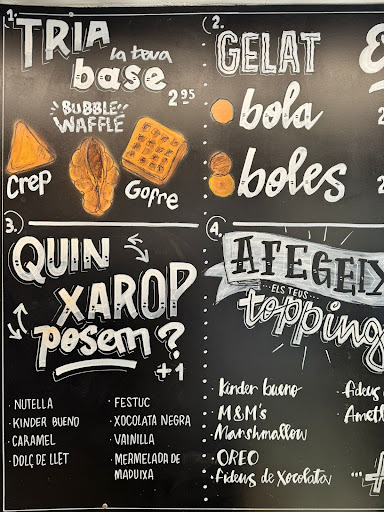 1.
TRIA
la teva
base
2 95
"BUBBLE"
WAFFLE
Crep
Gofre
2.
GELAT
bola
boles
3.
QUIN
XAROP
posem?
+1
· NUTELLA
· KINDER BUENO
· CARAMEL
· DOLÇ DE LLET
· FESTUC
· XOCOLATA NEGRA
· VAINILLA
· MERMELADA DE
MADUIXA
4.
AFEGEIX
...ELS TEUS...
topping
· Kinder bueno
· M&M's
· Marshmallow
· OREO
· Fideus de Xocolata
· Fideus
...+